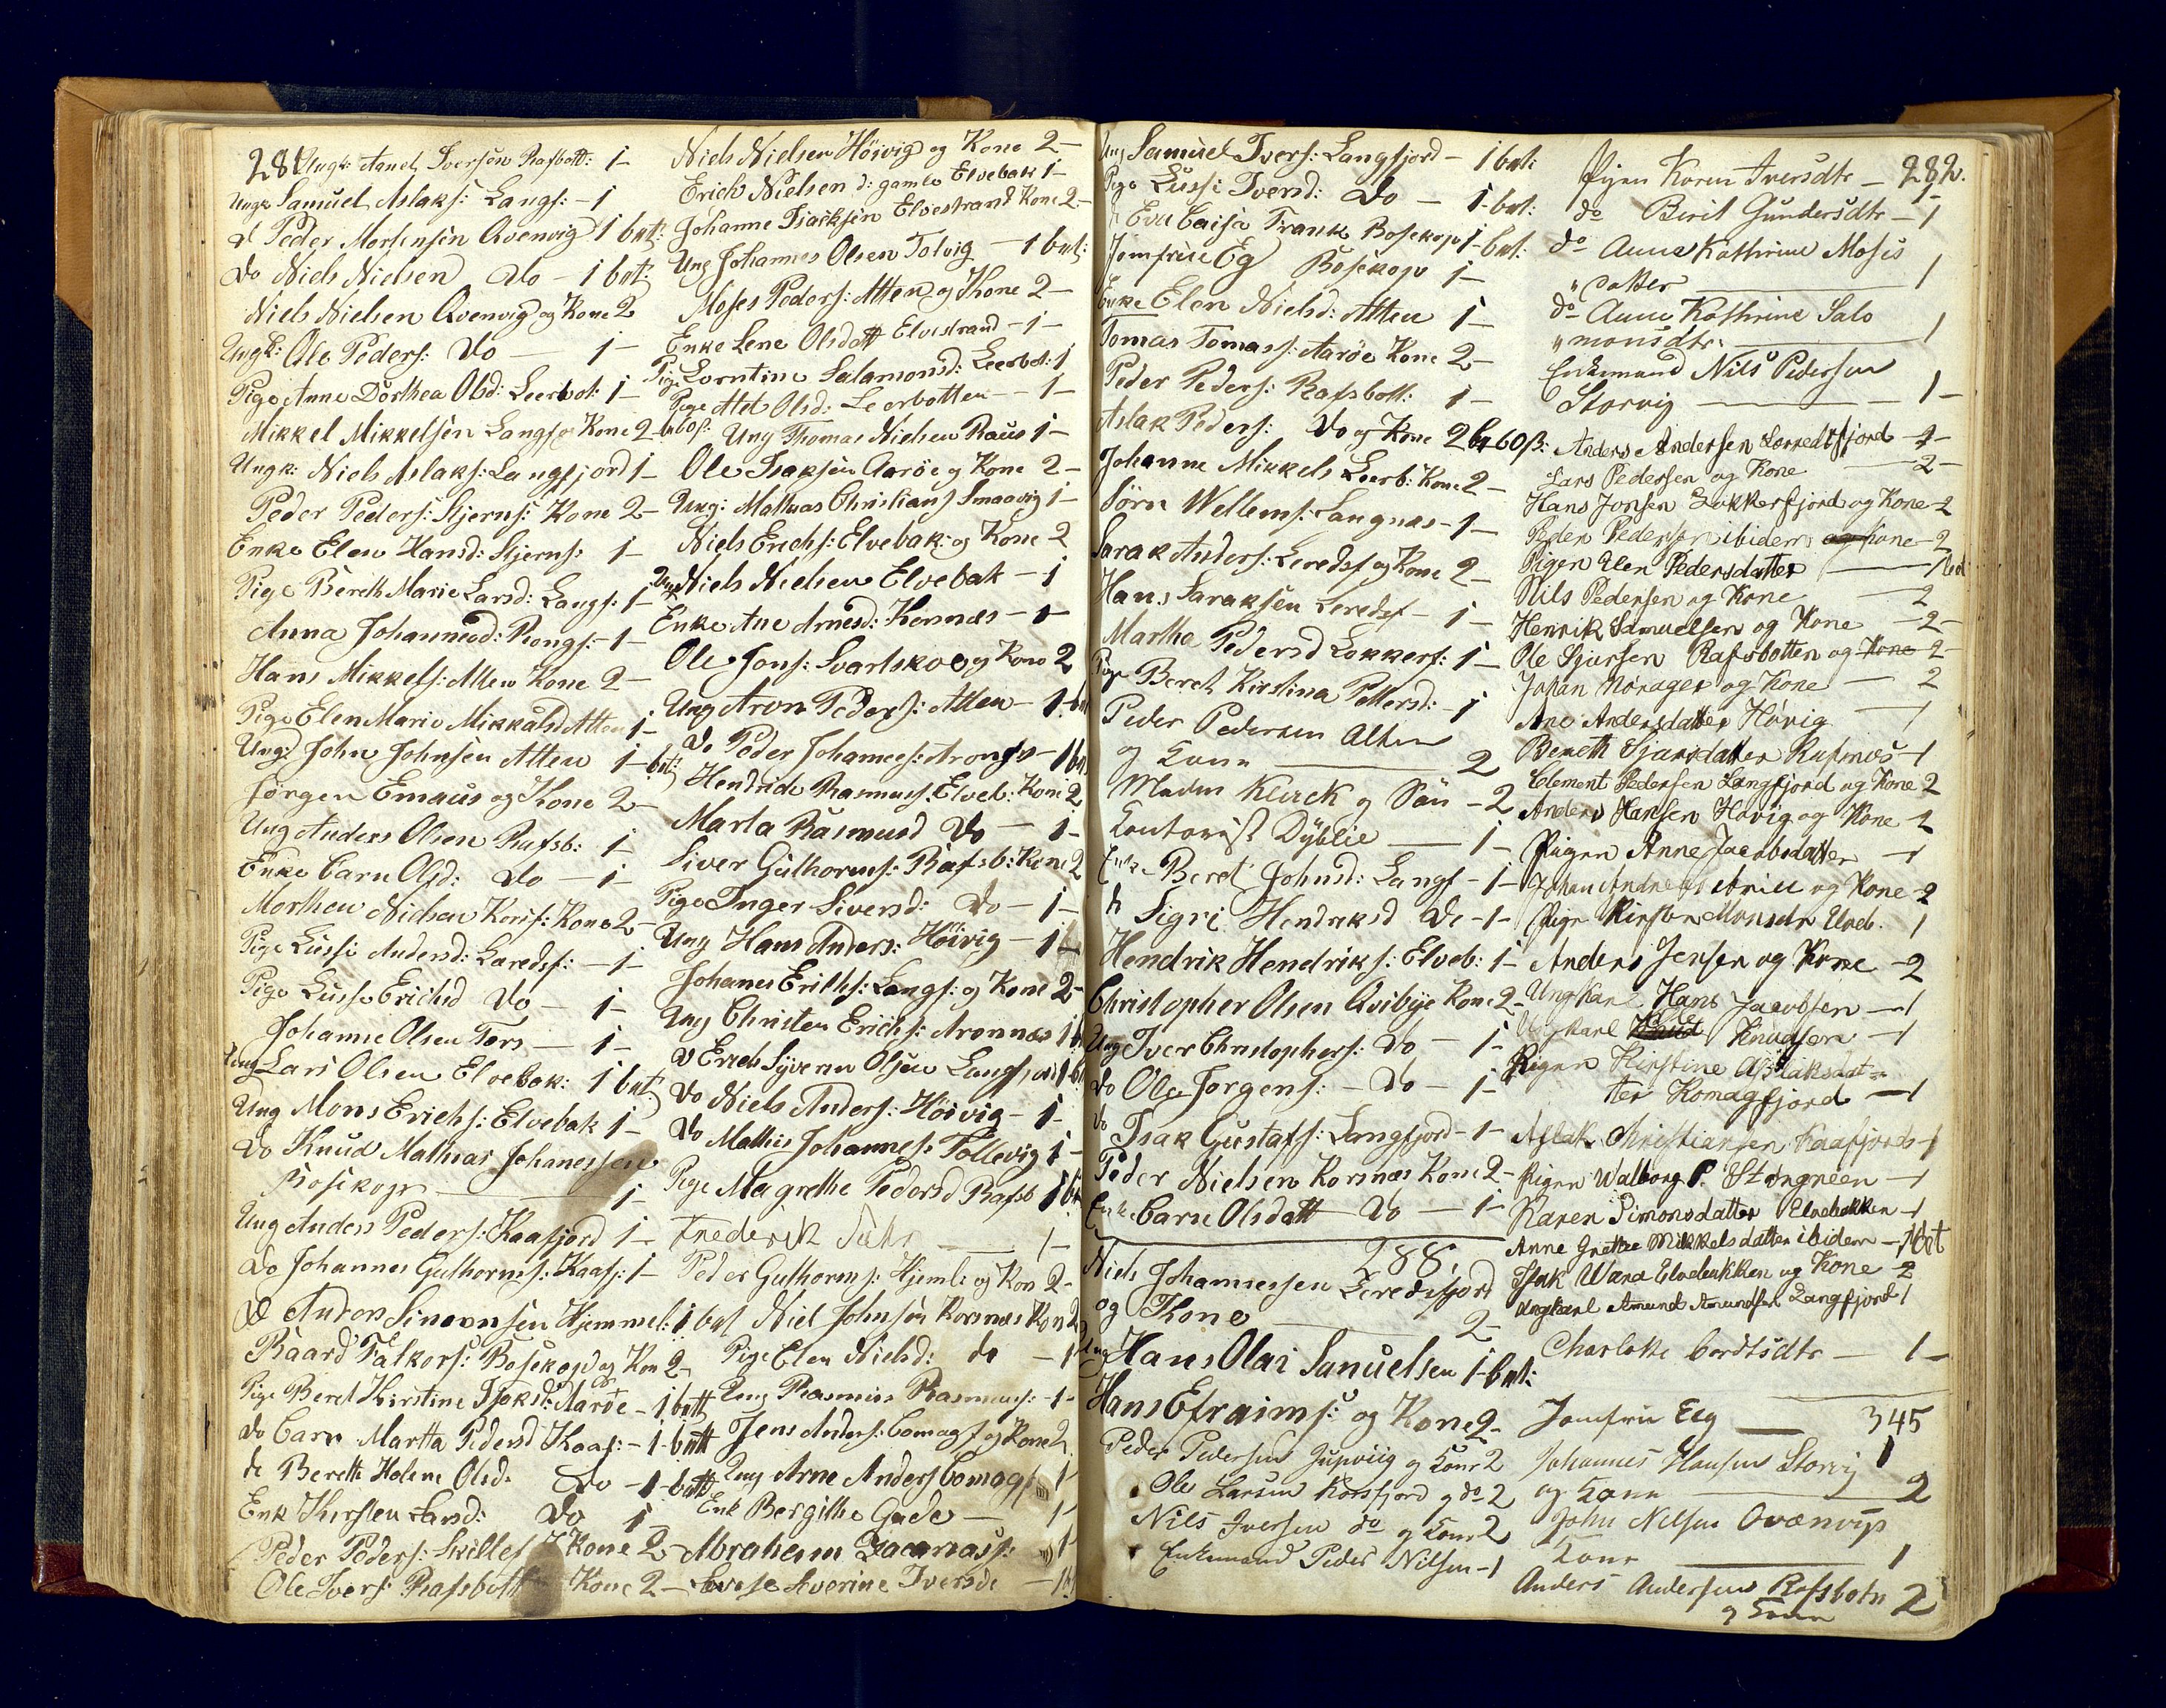 281
Ungk: Amel Iversen Rafbott: 1-
Ungk Samuel Aslaks: Langf: - 1
d Peder Mortensen Qvenvig 1 bnt:
do Niels Nielsen do - 1 bnt:
Niels Nielsen Qvenvig og Kone 2
Ungk: Ole Peders: do - 1 -
Pige Anne Dorthea Olsd: Leerbot: 1 -
Mikkel Mikkelsen Langf og Kone 2 -
Ungk: Niels Aslaks: Langfjord 1 -
Peder Peders: Stjerns: Kone 2 -
Enke Elen Hansd: Stjerns: 1 -
Pige Bereth Marie Larsd: Langf: 1 -
Anna Johannesd: Rongs: - 1 -
Hans Mikkels: Alten Kone 2 -
Pige Elen Marie Mikkelsd Alten 1 -
Ung: John Johnsen Alten 1 - bnt:
Jørgen Emaus og Kone 2 -
Ung Anders Olsen Rafsb: 1 -
Enke Carn Olsd: do - 1 -
Morthen Nielsen Korsf: Kone 2 -
Pige Lussi Andersd: Laredsf: - 1 -
Pige Lusse Erichsd do - 1 -
Johanne Olsen Tørs - 1 -
Ung Lars Olsen Elvebak: 1 bnt:
Ung Mons Erichs: Elvebak 1 -
do Knud Mathias Johanessen
Bosekop - 1 -
Ung Anders Peders: Kaafjord 1 -
do Johannes Gulhorms: Kaafj: 1 -
do Anders Simonsen Hjemmel: 1 bnt
Baard Falkors: Bosekop og Kon 2 -
Pige Beret Kirstine Isaksd: Aarøe - 1 bntt
do Carn Martta Pedersd Kaaf: - 1 - bntt
do Berette Helene Olsd: do - 1 bntt
Enk Kirsten Larsd: do 1 -
Peder Peders: Skillef Kone 2 -
Ole Ivers: Rafsbott Kone 2 -
Niels Nielsen Høivig og Kone 2 -
Erich Nielsen d: gamle Elvebak 1 -
Johanne Isacksen Elvestrand Kone 2 -
Ung Johannes Olsen Tolvig - 1 bnt:
Moses Peders: Alten og Kone 2 -
Enke Lene Olsdatt Elvestrand - 1 -
Pige Lorntine Salamonsd: Leerbot: 1
Pige Atet Olsd: Leerbotten - - 1 -
Ung Thomas Nielsen Raus 1 -
Ole Isaksen Aarøe og Kone 2 -
Ung: Mathias Christians Smaavig 1 -
Niels Erichs: Elvebak: og Kone 2
Ung Niels Nielsen Elvebak - 1
Enke Ane Arnesd: Kornnæs - 1 -
Ole Jons: Svartskog og Kone 2
Ung Aron Peders: Alten - 1 - bnt
do Peder Johannes: Arons - 1 bnt
Hendrick Rasmus: Elveb: Kone 2
Marta Rasmusd do - 1 -
Siver Gulhorms: Rafsb: Kone 2
Pige Inger Siversd: do - 1 -
Ung Hans Anders: Høivig - 1
Johanes Erichs: Langf: og Kone 2 -
Ung Christen Erichs: Aronnæs 1
d Erich Syveren Olsen Langfjord 1 bnt
do Niels Anders: Høivig - 1 -
do Mathis Johannes: Tollevig 1 -
Pige Magrethe Pedersd Rafsb 1 bnt
Frederik Suhr - 1 -
Peder Gulhorms: Hjeml: og Kon 2 -
Niel Johnsen Kornnæs Kon 2
Pige Elen Nielsd: do - 1
Ung Rasmus Rasmus: - 1 -
Jens Anders: Comagf og Kone 2
Ung Arne Anders Comagf 1 -
Enk Bergithe Gade - 1 -
Abraham Zacariass: 1
Severine Iversde - 1 bt
Ung Samuel Ivers: Langfjord - 1 bnt:
Pige Lussi Iversd: do - 1 - bnt:
d Eva Caisa Frank Bosekop 1 - bnt:
Jomfrue Eg Bosekop 1 -
Enke Elen Nielsd: Alten 1 -
Tomas Tomass: Aarøe Kone 2 -
Peder Peders: Rafsbott: 1 -
Aslak Peders: do og Kone 2 b 60 ß:
Johanne Mikkels Leerb: Kone 2 -
Sørn Wellems: Langnæs - 1 -
Sarak Anders: Leredsf og Kone 2 -
Hans Saraksen Leredsf - 1 -
Martha Pedersd Lokkerf: 1 -
Pige Beret Kirstina Pettersd: - 1
Peder Pedersen Alten
og Kone - 2
Madm Klerck og Søn - 2
Contorist Dyblie - 1 -
Enke Beret Johnsd: Langf - 1 -
d Sigri Hendriksd do - 1 -
Hendrik Hendriks: Elveb: 1 -
Christopher Olsen Qvibye Kone 2 -
Ung Iver Christophers: do - 1 -
do Ole Jørgens: - do - 1 -
do Isak Gustafs: Langfjord - 1 -
Peder Nielsen Korsnæs Kone 2 -
Enke Carn Olsdatt do - 1 -
288.
Niels Johannessen Leredsfjord
og Kone - 2 -
Ung Hans Olai Samuelsen 1 - bnt:
Hans Efraims: og Kone 2 -
Peder Pedersen Jupviig og Kone 2
Ole Larsen Korsfjord og do 2
Nils Iversen do og Kone 2
Enkemand Peder Nilsen - 1
282.
Pigen Karen Iversdtr - 1 -
do Berit Gundersdtr - 1
do Anna Kathrine Moses
" datter - 1
do Anne Kathrine Salo
" monsdtr. - 1
Enkemand Nils Pedersen
Storvig - 1 -
Anders Andersen Lerredtsfjord - 1 -
Lars Pedersen og Kone - 2 -
Hans Jonsen Lokkerfjord og Kone - 2
Peder Pedersen ibidem og Kone - 2
Pigen Elen Pedersdatter - 1 bet
Nils Pedersen og Kone - 2
Henrik Samuelsen og Kone - 2 -
Ole Sjursen Rafsbotten og Kone 2 -
Johan Norager og Kone - 2
Ane Andersdatter Høvig - 1
Bereth Sjursdatter Rafsnæs - 1
Clement Pedersen Langfjord og Kone 2
Anders Hansen Høvig og Kone 2
Pigen Anne Jacobsdatter - 1
Johan Andreas Ariu og Kone - 2
Pige Kirsten Monsdr Elveb. 1
Anders Jensen og Kone - 2
Ungkarl Hans Jacobsen - 1
Ungkarl Knud Knudsen - 1
Pigen Kirstine Aslaksdat-
ter Komagfjord - 1
Aslak Christiansen Kaafjord - 1
Pigen Walborg P. Størgnæen - 1
Karen Simonsdatter Elvebakken - 1
Anne Grethe Mikkelsdatter ibidem - 1 bet
Isak Wara Elvebakken og Kone - 2
Ungkarl Amund Amundsen Langfjord 1
Charlotte Cordtsdtr - 1 -
345
Jomfrue Eeg - 1
Johannes Hansen Storvig
og Kone - 2
John Nilsen Qvænvig
Kone - 1
Anders Andersen Rafsbotn 2
og Kone